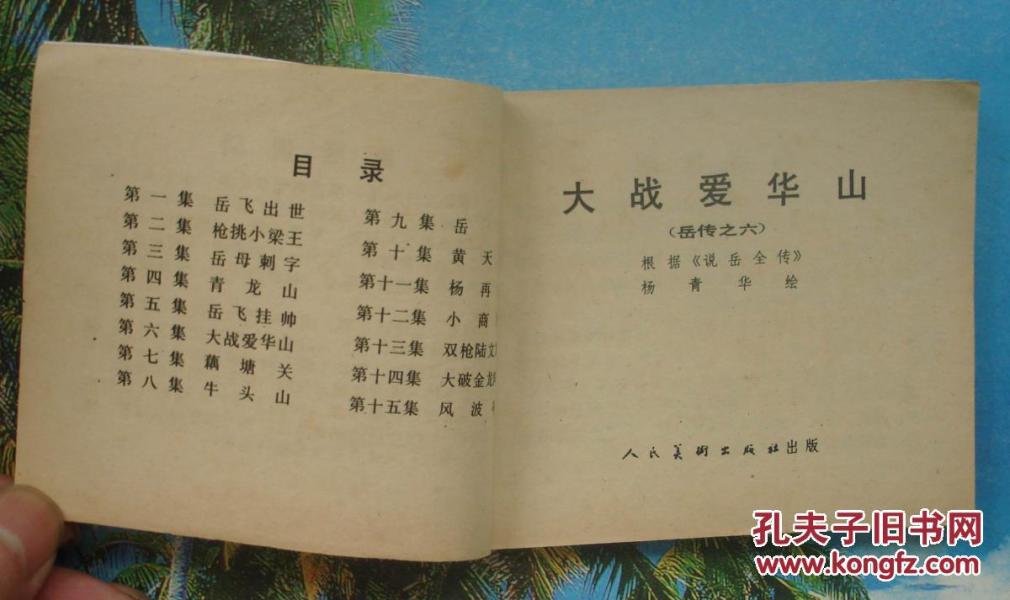 目录
第一集 岳飞出世
第二集 枪挑小梁王
第三集 岳母刺字
第四集 青龙山
第五集 岳飞挂帅
第六集 大战爱华山
第七集 藕塘关
第八集 牛头山
第九集 岳
第十集 黄天
第十一集 杨再
第十二集 小商
第十三集 双枪陆文
第十四集 大破金龙
第十五集 风波
大战爱华山
（岳传之六）
根据《说岳全传》
杨青华绘
人民美術出版社出版
孔夫子旧书网
www.kongfz.com